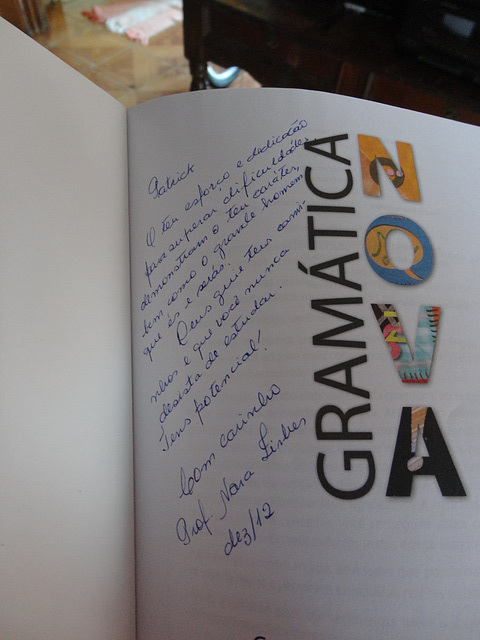 Patrick
O teu esforço e dedicação
para superar dificuldades
demonstram o teu caráter,
bem como o grande homem
que és e serás.
Deus guie teus cami-
nhos e que você nunca
desista de estudar.
Tens potencial!
Com carinho
Prof. Nara
dez/12
GRAMÁTICA
NOVA